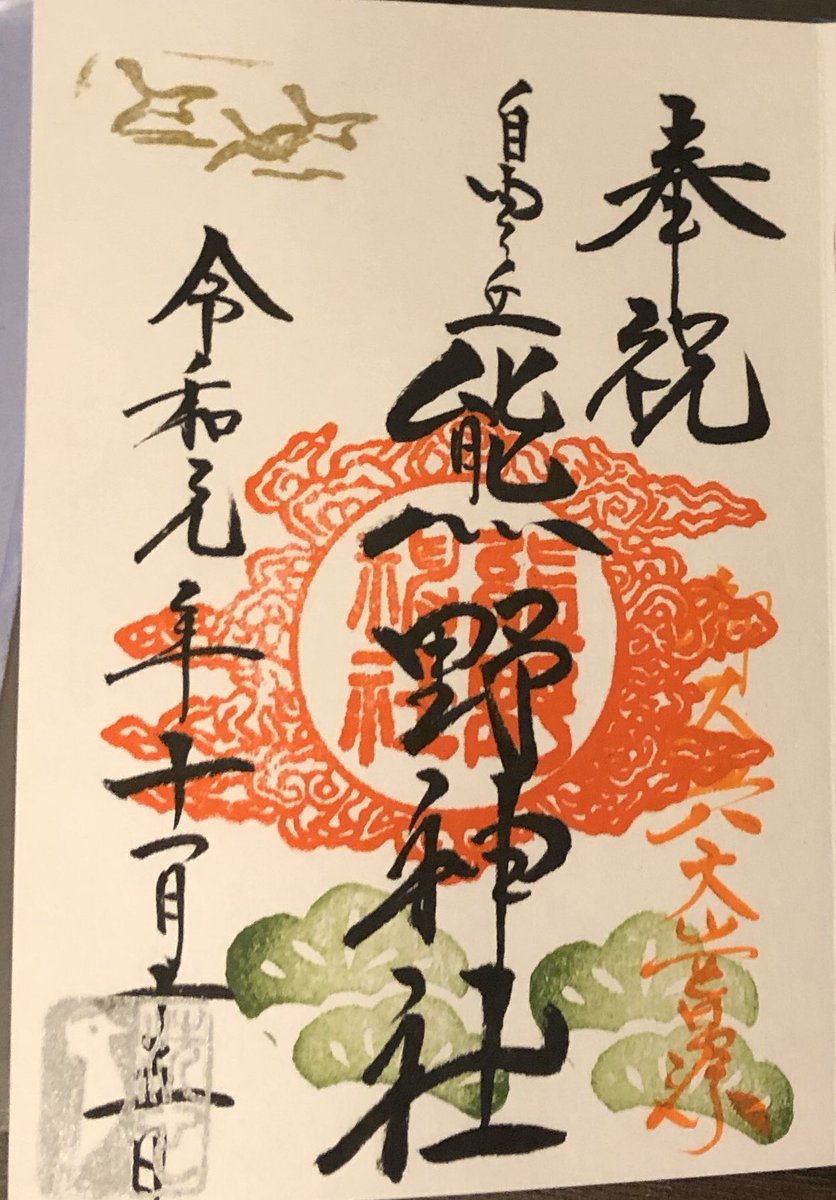 奉祝
御大典大嘗祭
自由ヶ丘
熊野神社
熊野
神社
令和元年十一月
日